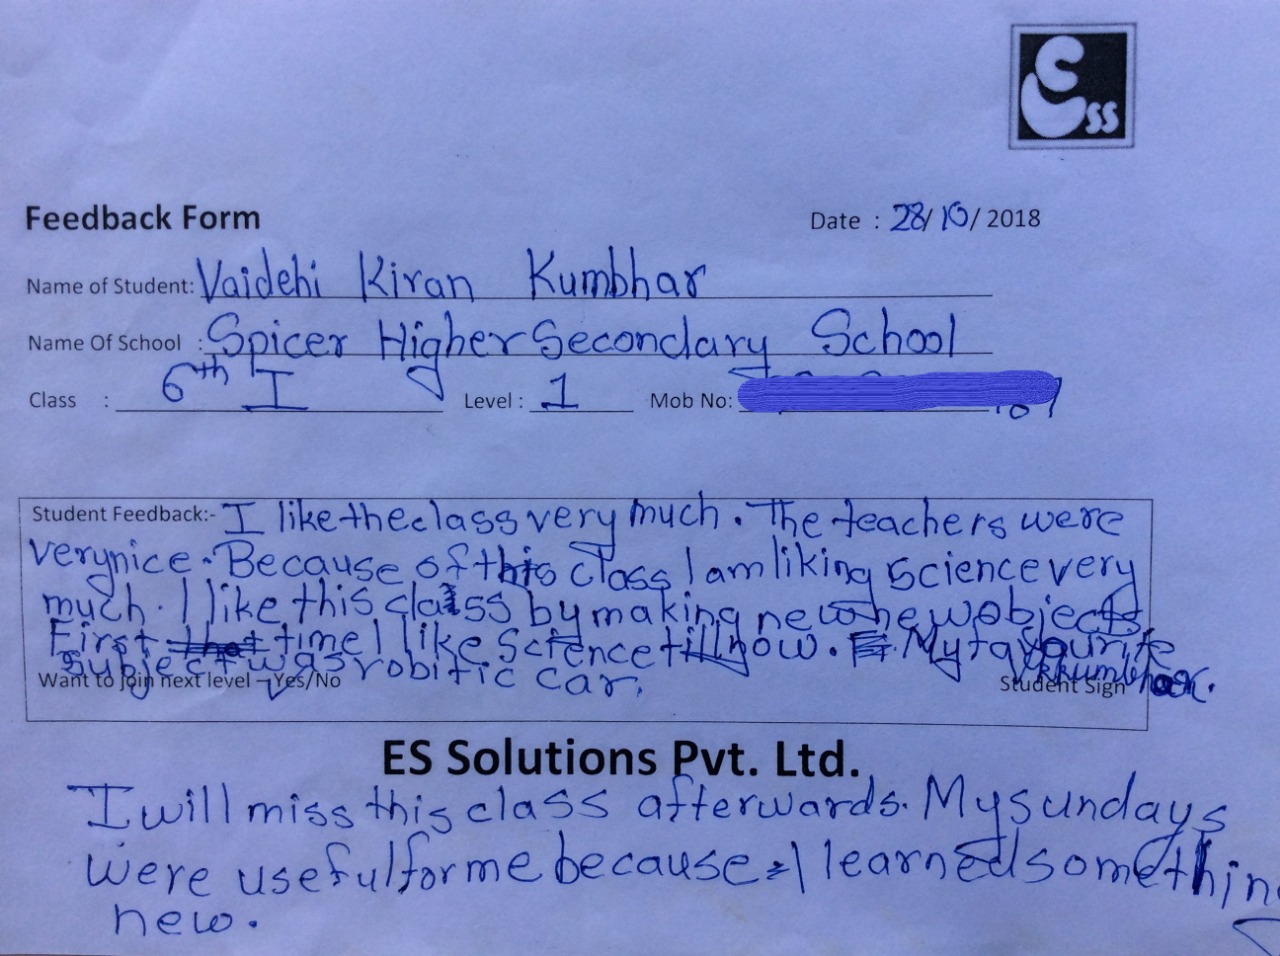 ESS
Feedback Form
Date : 28/10/2018
Name of Student: Vaidehi Kiran Kumbhar
Name Of School : Spicer Higher Secondary School
Class : 6th I Level : 1 Mob No:
Student Feedback:- I like the class very much. The teachers were
very nice. Because of this class I am liking science very
much. I like this class by making new new objects
First time I like Science till now. My favourite
subject was robitic car.
Want to join next level – Yes/No
Student Sign
ES Solutions Pvt. Ltd.
I will miss this class afterwards. My sundays
were useful for me because I learned something
new.